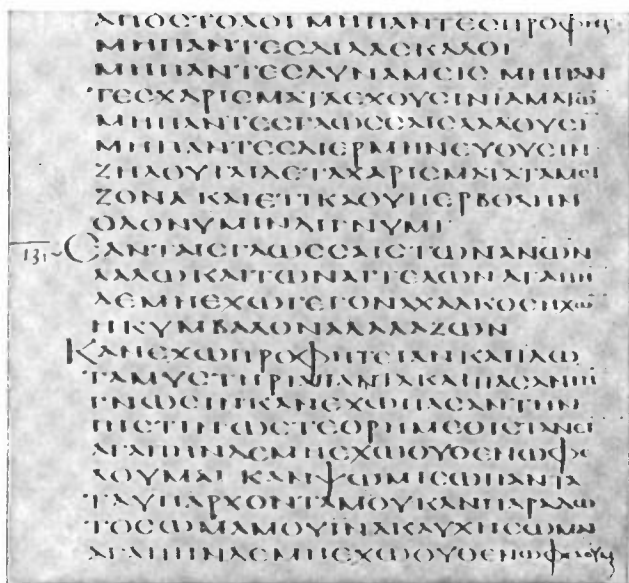 ΑΠΟCΤΟΛΟΙ ΜΗΠΑΝΤΕCΠΡΟΦΗΤ
ΜΗΠΑΝΤΕCΔΙΔΑCΚΑΛΟΙ
ΜΗΠΑΝΤΕCΔΥΝΑΜΕΙC ΜΗΠΑΝ
ΤΕCΧΑΡΙCΜΑΤΑΕΧΟΥCΙΝΙΑΜΑΤΩ
ΜΗΠΑΝΤΕCΓΛΩCCΑΙCΛΑΛΟΥCΙ
ΜΗΠΑΝΤΕCΔΙΕΡΜΗΝΕΥΟΥCΙΝ
ΖΗΛΟΥΤΑΙΔΕΤΑΧΑΡΙCΜΑΤΑΤΑΜΕΙ
ΖΟΝΑ ΚΑΙΕΤΙΚΑΘΥΠΕΡΒΟΛΗΝ
ΟΔΟΝΥΜΙΝΔΙΓΝΥΜΙ
131 ΕΑΝΤΑΙCΓΛΩCCΑΙCΤΩΝΑΝΩΝ
ΛΑΛΩΚΑΙΤΩΝΑΓΓΕΛΩΝ ΑΓΑΠΗ
ΔΕΜΗΕΧΩΓΕΓΟΝΑΧΑΛΚΟCΗΧΩ
ΗΚΥΜΒΑΛΟΝΑΛΑΛΑΖΩΝ
ΚΑΝΕΧΩΠΡΟΦΗΤΕΙΑΝΚΑΙΙΔΩ
ΤΑΜΥCΤΗΡΙΑΠΑΝΤΑΚΑΙΠΑCΑΝΤΗ
ΓΝΩCΙΝ ΚΑΝΕΧΩΠΑCΑΝΤΗΝ
ΠΙCΤΙΝΩCΤΕΟΡΗΜΕΘΙCΤΑΝΕΙ
ΑΓΑΠΗΝΔΕΜΗΕΧΩΟΥΘΕΝΩΦΕ
ΛΟΥΜΑΙ ΚΑΝΨΩΜΙCΩΠΑΝΤΑ
ΤΑΥΠΑΡΧΟΝΤΑΜΟΥΚΑΝΠΑΡΑΔΩ
ΤΟCΩΜΑΜΟΥΙΝΑΚΑΥΧΗCΩΜΑΙ
ΑΓΑΠΗΝΔΕΜΗΕΧΩΟΥΘΕΝΩΦΕΛΟΥΜ